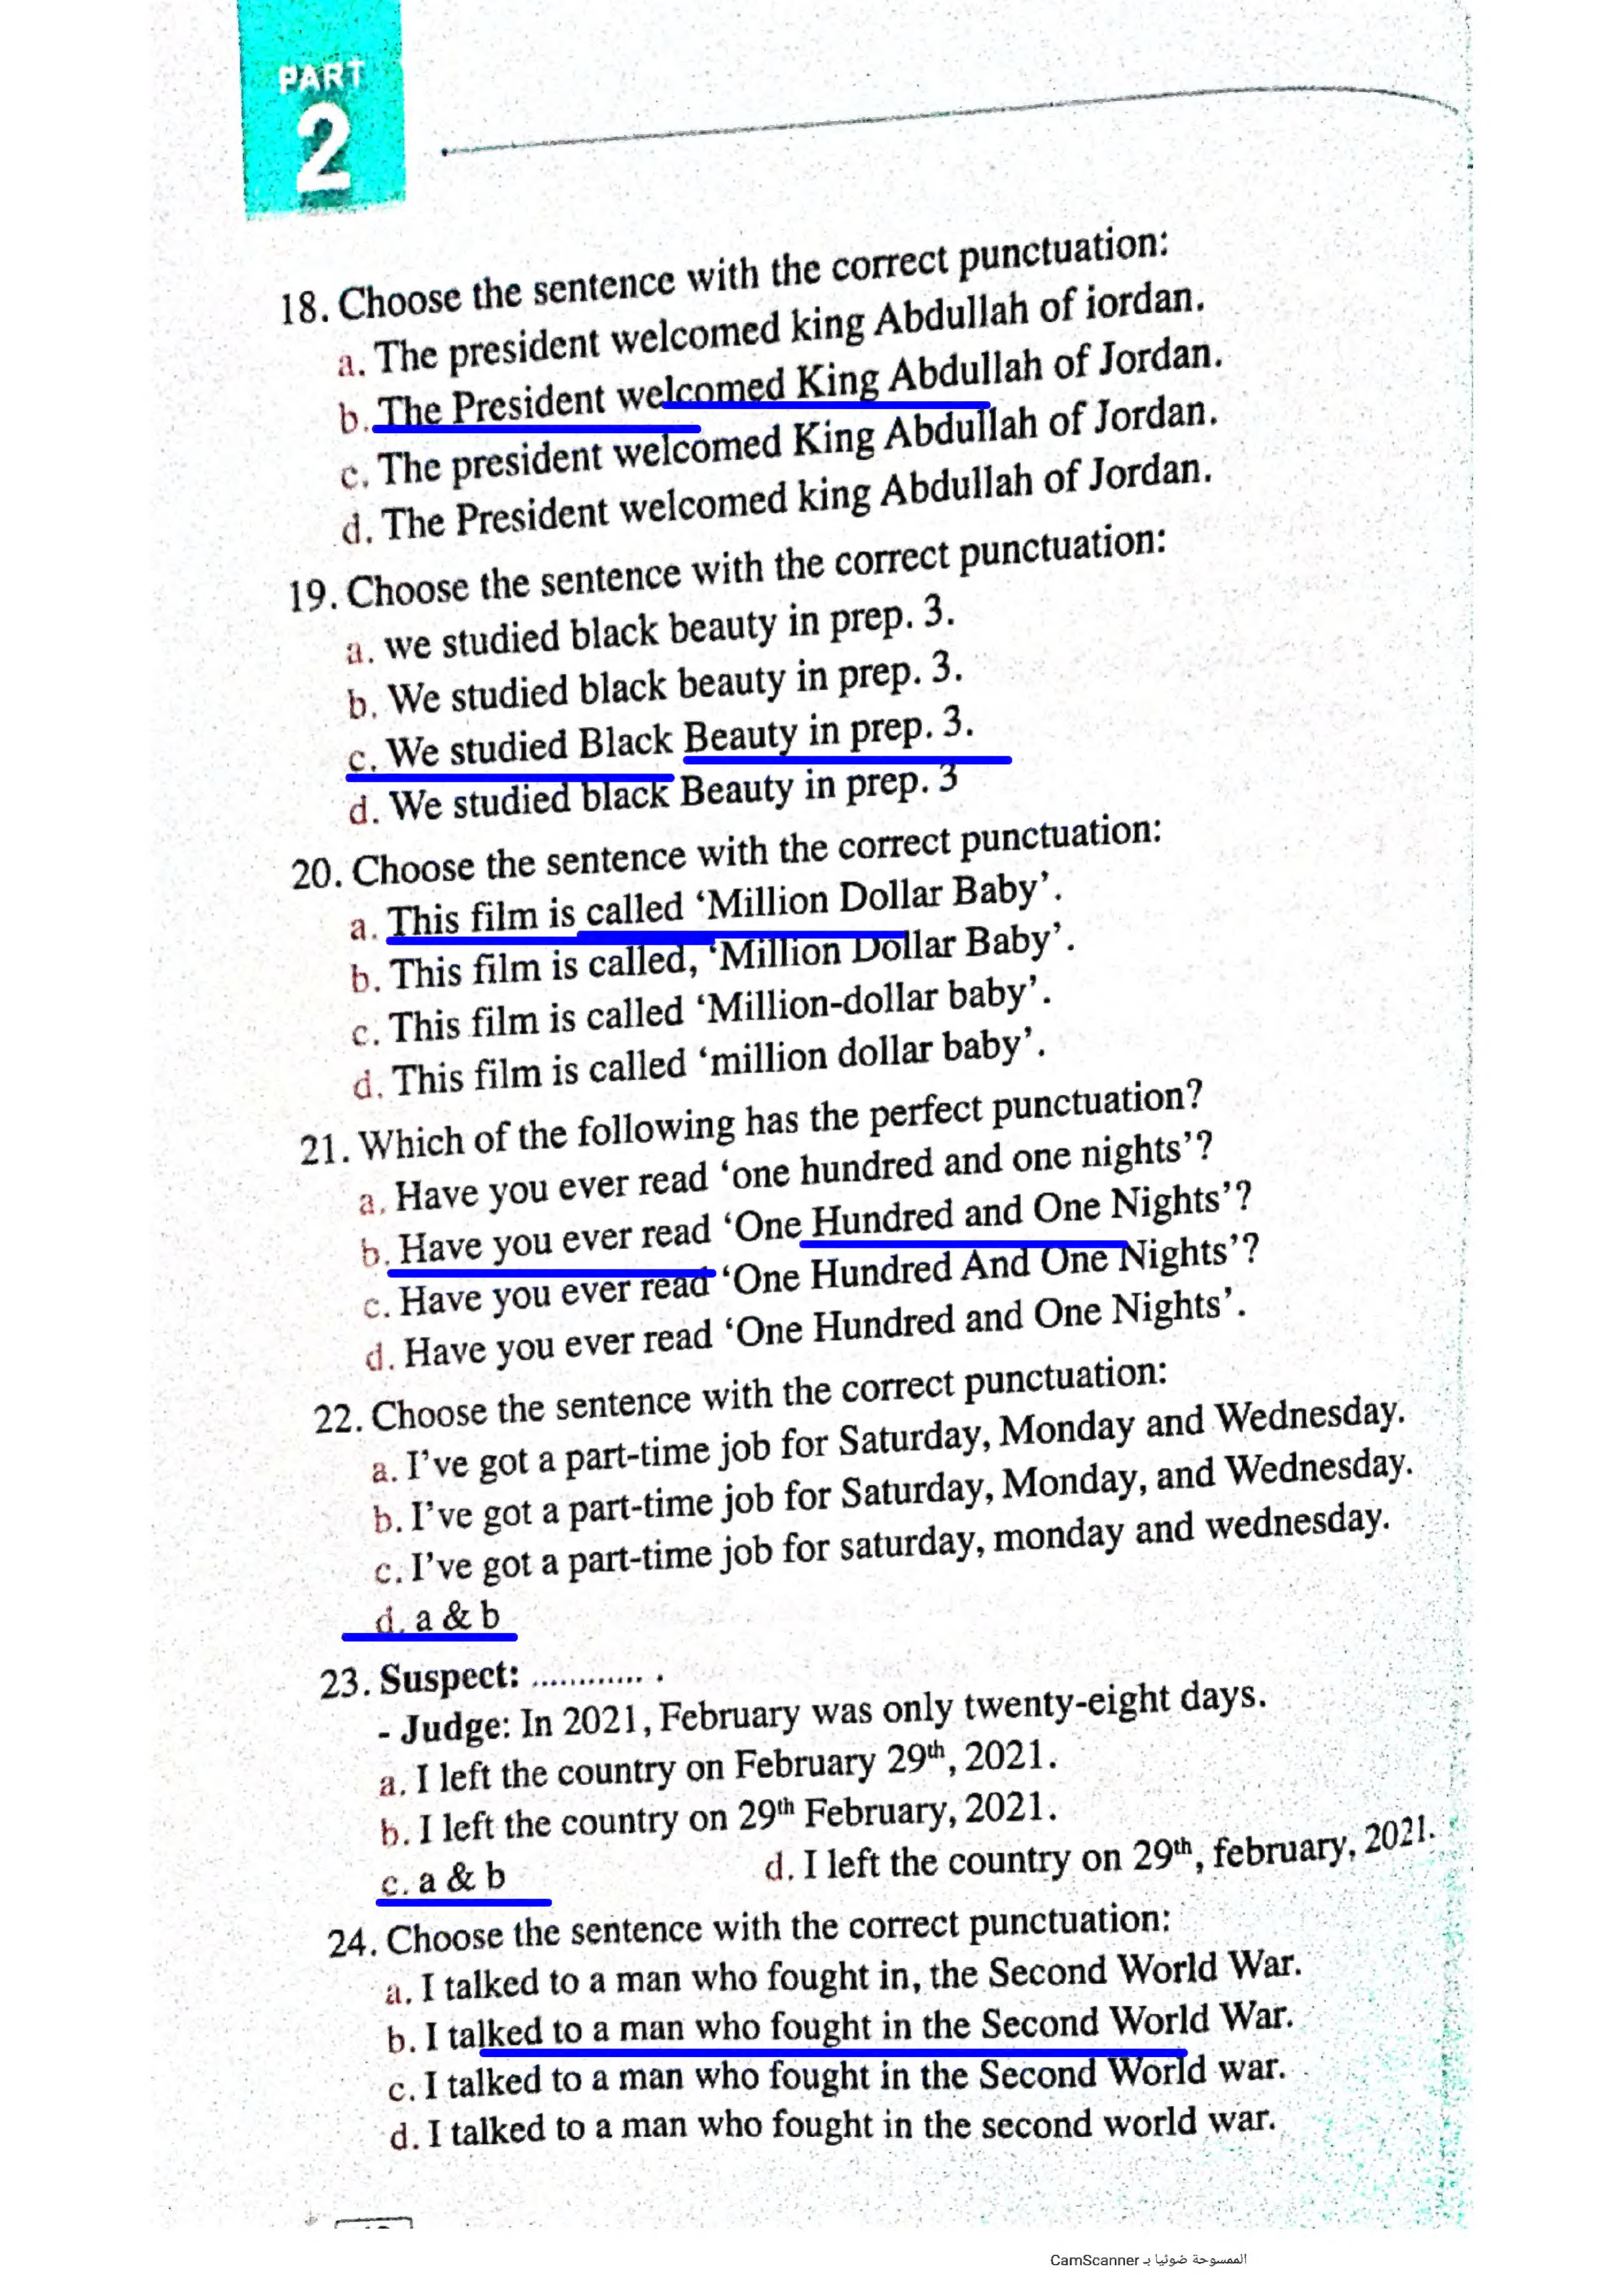 PART
2
18. Choose the sentence with the correct punctuation:
a. The president welcomed king Abdullah of iordan.
b. The President welcomed King Abdullah of Jordan.
c. The president welcomed King Abdullah of Jordan.
d. The President welcomed king Abdullah of Jordan.
19. Choose the sentence with the correct punctuation:
a. we studied black beauty in prep. 3.
b. We studied black beauty in prep. 3.
c. We studied Black Beauty in prep. 3.
d. We studied black Beauty in prep. 3
20. Choose the sentence with the correct punctuation:
a. This film is called ‘Million Dollar Baby’.
b. This film is called, ‘Million Dollar Baby’.
c. This film is called ‘Million-dollar baby’.
d. This film is called ‘million dollar baby’.
21. Which of the following has the perfect punctuation?
a. Have you ever read ‘one hundred and one nights’?
b. Have you ever read ‘One Hundred and One Nights’?
c. Have you ever read ‘One Hundred And One Nights’?
d. Have you ever read ‘One Hundred and One Nights’.
22. Choose the sentence with the correct punctuation:
a. I’ve got a part-time job for Saturday, Monday and Wednesday.
b. I’ve got a part-time job for Saturday, Monday, and Wednesday.
c. I’ve got a part-time job for saturday, monday and wednesday.
d. a & b
23. Suspect: ............ .
- Judge: In 2021, February was only twenty-eight days.
a. I left the country on February 29th, 2021.
b. I left the country on 29th February, 2021.
c. a & b d. I left the country on 29th, february, 2021.
24. Choose the sentence with the correct punctuation:
a. I talked to a man who fought in, the Second World War.
b. I talked to a man who fought in the Second World War.
c. I talked to a man who fought in the Second World war.
d. I talked to a man who fought in the second world war.
الممسوحة ضوئيا بـ CamScanner